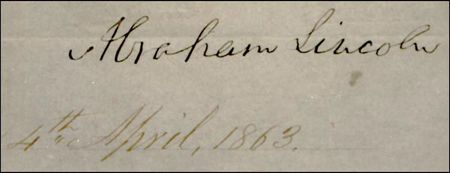 Abraham Lincoln
4th April, 1863.